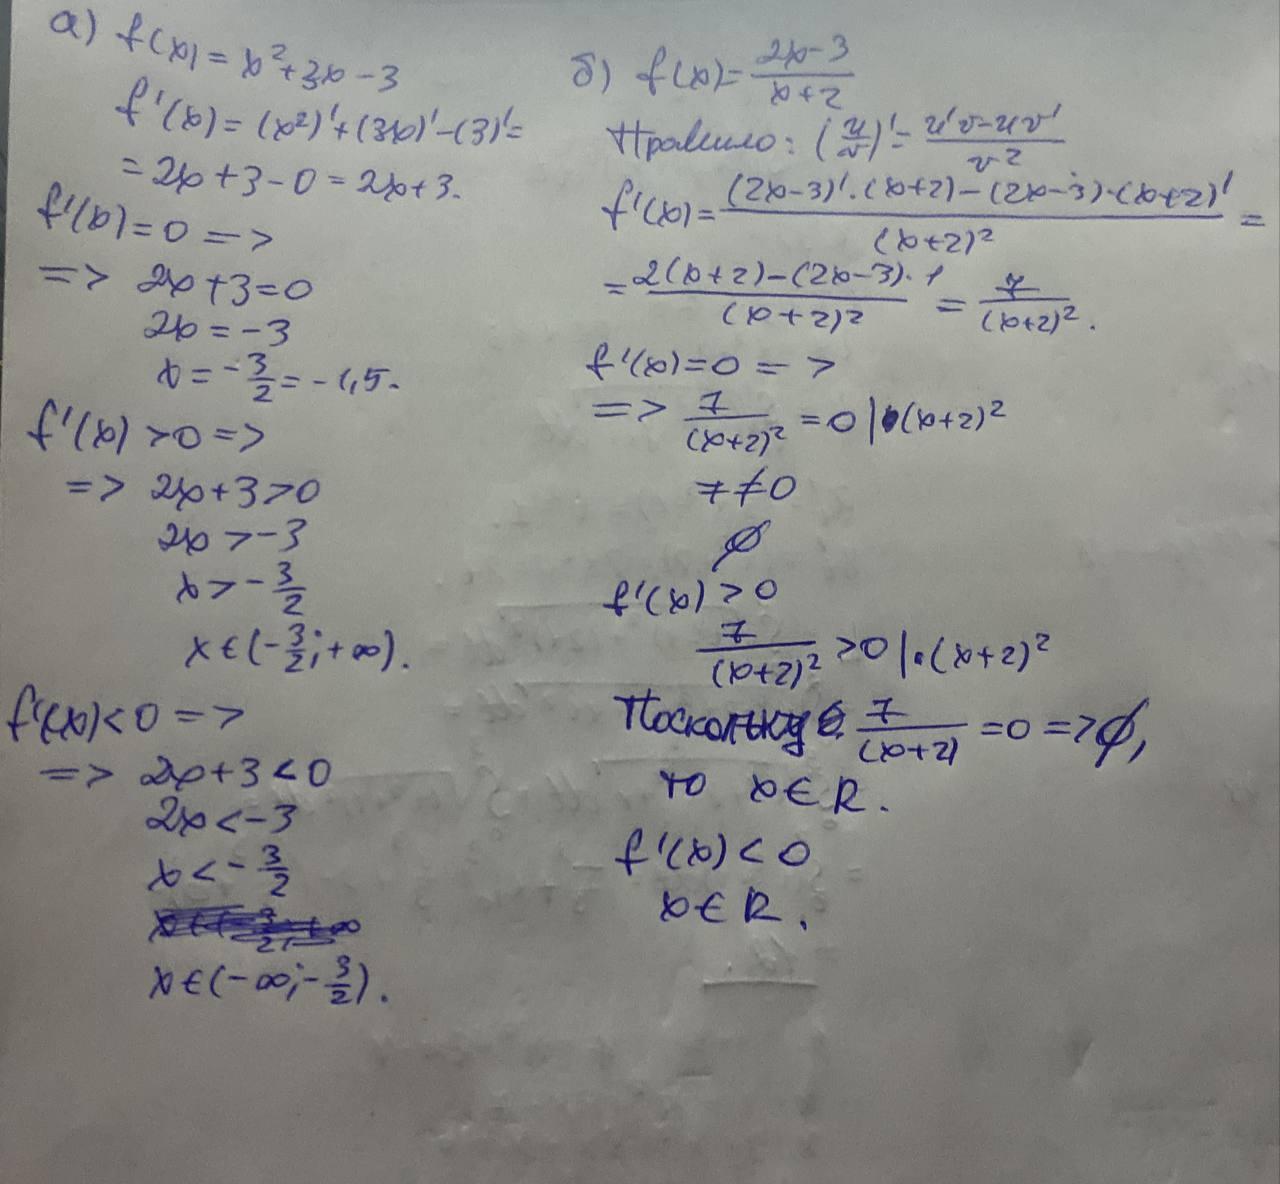 а) f(x) = x²+3x-3
f'(x) = (x²)'+(3x)'-(3)'=
= 2x+3-0 = 2x+3.
f'(x)=0 =>
=> 2x+3=0
2x=-3
x=-3/2=-1,5.
f'(x)>0 =>
=> 2x+3>0
2x>-3
x>-3/2
x∈(-3/2;+∞).
f'(x)<0 =>
=> 2x+3<0
2x<-3
x<-3/2
x∈(-∞;-3/2).
б) f(x)=(2x-3)/(x+2)
Правило: (u/v)'=(u'v-uv')/v²
f'(x)=((2x-3)'·(x+2)-(2x-3)·(x+2)')/(x+2)² =
=(2(x+2)-(2x-3)·1)/(x+2)² = 7/(x+2)².
f'(x)=0 =>
=> 7/(x+2)² =0|·(x+2)²
7≠0
∅
f'(x)>0
7/(x+2)² >0|·(x+2)²
Поскольку 7/(x+2) =0 =>∅,
то x∈R.
f'(x)<0
x∈R.